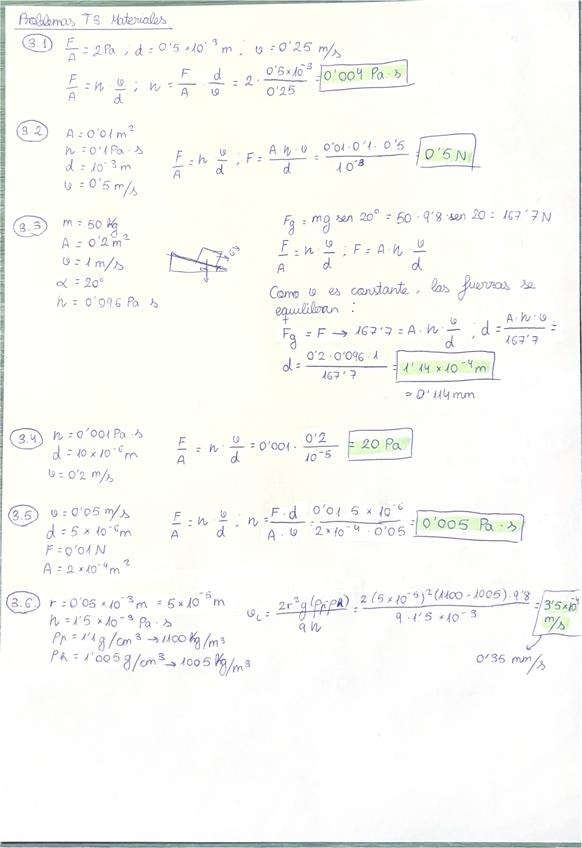 Problemas T3 Materiales
3.1 F/A = 2Pa ; d = 0'5 × 10⁻³ m ; v = 0'25 m/s
F/A = η · v/d ; η = F/A · d/v = 2 · 0'5×10⁻³/0'25 = 0'004 Pa · s
3.2 A = 0'01 m²
η = 0'1 Pa · s
d = 10⁻³ m
v = 0'5 m/s
F/A = η v/d ; F = A·η·v/d = 0'01·0'1·0'5/10⁻³ = 0'5 N
3.3 m = 50 kg
A = 0'2 m²
v = 1 m/s
α = 20°
η = 0'096 Pa s
Fg = mg sen 20° = 50 · 9'8 · sen 20 = 167'7 N
F/A = η · v/d ; F = A · η · v/d
Como v es constante, las fuerzas se
equilibran :
Fg = F → 167'7 = A · η · v/d ; d = A·η·v/167'7 =
d = 0'2 · 0'096 · 1/167'7 = 1'14 × 10⁻⁴ m
≈ 0'114 mm
3.4 η = 0'001 Pa · s
d = 10 × 10⁻⁶ m
v = 0'2 m/s
F/A = η · v/d = 0'001 · 0'2/10⁻⁵ = 20 Pa
3.5 v = 0'05 m/s
d = 5 × 10⁻⁶ m
F = 0'01 N
A = 2 × 10⁻⁴ m²
F/A = η · v/d ; η = F · d/A · v = 0'01 · 5 × 10⁻⁶/2 × 10⁻⁴ · 0'05 = 0'005 Pa · s
3.6. r = 0'05 × 10⁻³ m = 5 × 10⁻⁵ m
η = 1'5 × 10⁻³ Pa · s
Pp = 1'1 g/cm³ → 1100 kg/m³
Ph = 1'005 g/cm³ → 1005 kg/m³
v_L = 2r²g(Pp-Ph)/9η = 2(5 × 10⁻⁵)²(1100 - 1005) · 9'8/9 · 1'5 × 10⁻³ = 3'5 × 10⁻⁴
m/s
0'35 mm/s